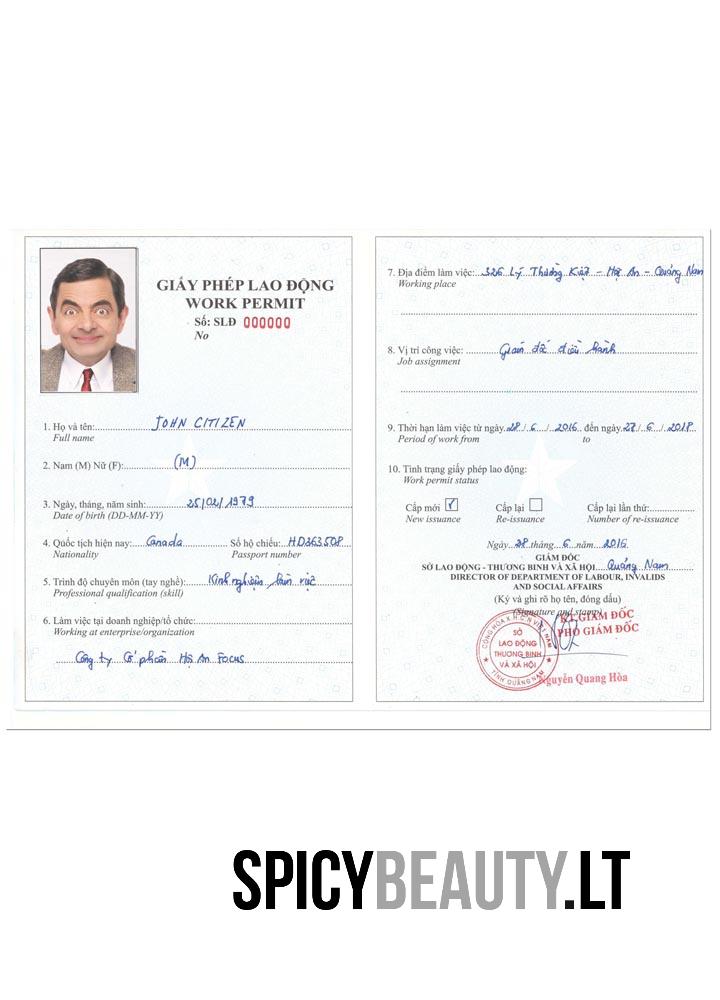 GIẤY PHÉP LAO ĐỘNG
WORK PERMIT
Số: SLĐ 000000
No
1. Họ và tên: JOHN CITIZEN
Full name
2. Nam (M) Nữ (F): (M)
3. Ngày, tháng, năm sinh: 25/02/1979
Date of birth (DD-MM-YY)
4. Quốc tịch hiện nay: Canada Số hộ chiếu: HD363508
Nationality Passport number
5. Trình độ chuyên môn (tay nghề): Kinh nghiệm làm việc
Professional qualification (skill)
6. Làm việc tại doanh nghiệp/tổ chức:
Working at enterprise/organization
Công ty Cổ phần Hội An Focus
7. Địa điểm làm việc: 326 Lý Thường Kiệt - Hội An - Quảng Nam
Working place
8. Vị trí công việc: Giám đốc điều hành
Job assignment
9. Thời hạn làm việc từ ngày 28/6/2016 đến ngày 27/6/2018
Period of work from to
10. Tình trạng giấy phép lao động:
Work permit status
Cấp mới Cấp lại Cấp lại lần thứ:
New issuance Re-issuance Number of re-issuance
Ngày 28 tháng 6 năm 2016
GIÁM ĐỐC
SỞ LAO ĐỘNG - THƯƠNG BINH VÀ XÃ HỘI Quảng Nam
DIRECTOR OF DEPARTMENT OF LABOUR, INVALIDS
AND SOCIAL AFFAIRS
(Ký và ghi rõ họ tên, đóng dấu)
(Signature and stamp)
KT.GIÁM ĐỐC
PHÓ GIÁM ĐỐC
CỘNG HÒA X.H.C.N VIỆT NAM
SỞ
LAO ĐỘNG
THƯƠNG BINH
VÀ XÃ HỘI
TỈNH QUẢNG NAM
Nguyễn Quang Hòa
SPICYBEAUTY.LT